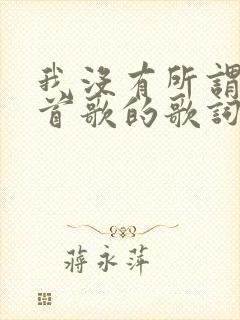 我沒有所謂
首歌的歌詞
蔣永萍